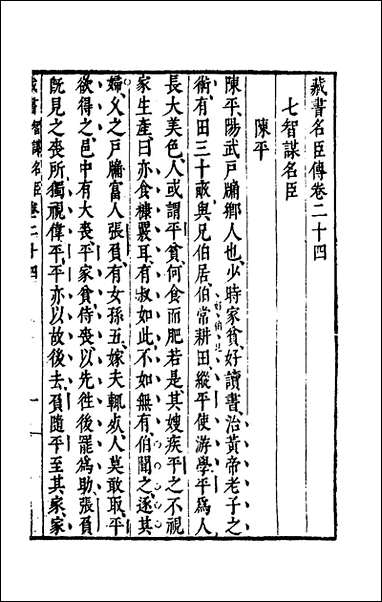 藏書名臣傳卷二十四
七智謀名臣
陳平
陳平陽武戶牖鄉人也少時家貧好讀書治黃帝老子之
術有田三十畝與兄伯居伯常耕田縱平使游學平爲人
好伯兄
長大美色人或謂平貧何食而肥若是其嫂疾平之不視
家生產曰亦食糠覈耳有叔如此不如無有伯聞之逐其
婦父之戶牖富人張負有女孫五嫁夫輒死人莫敢取平
欲得之邑中有大喪平家貧侍喪以先往後罷爲助張負
旣見之喪所獨視偉平平亦以故後去負隨平至其家家
藏書智謀名臣卷二十四
一